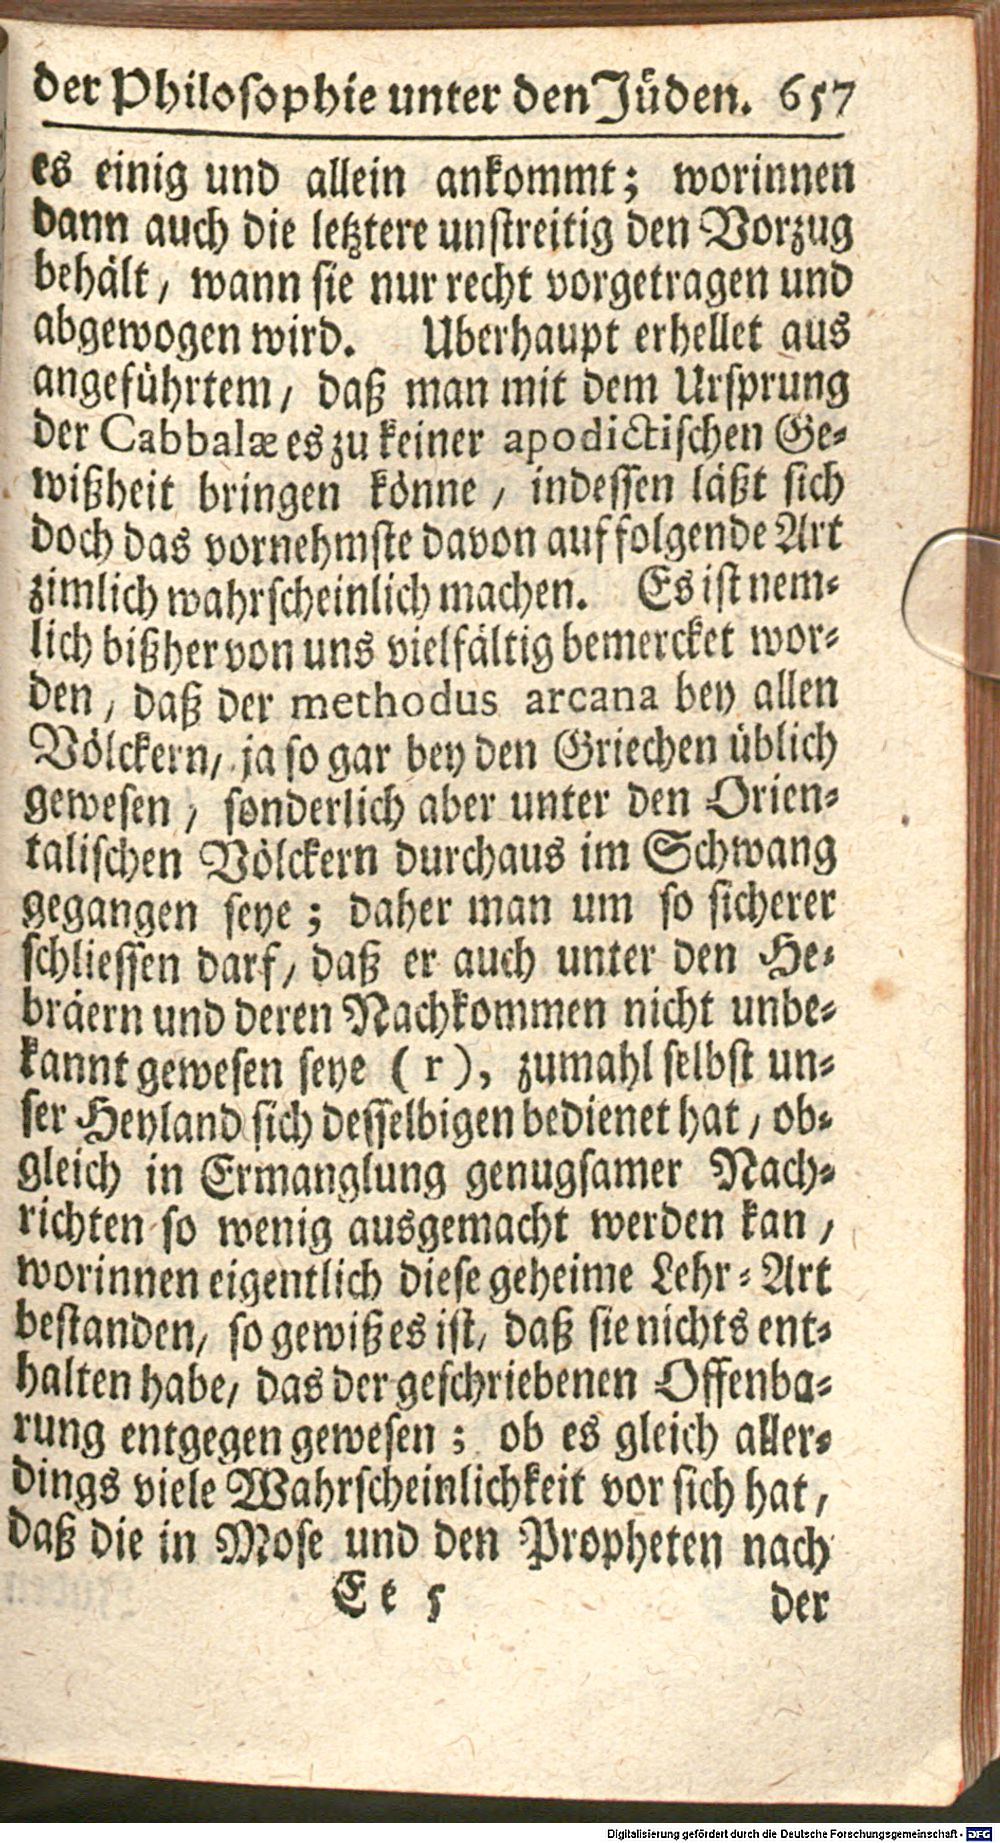 der Philosophie unter den Jüden. 657
es einig und allein ankommt; worinnen
dann auch die letztere unstreitig den Vorzug
behält, wann sie nur recht vorgetragen und
abgewogen wird. Uberhaupt erhellet aus
angeführtem, daß man mit dem Ursprung
der Cabbalæ es zu keiner apodictischen Ge-
wißheit bringen könne, indessen läßt sich
doch das vornehmste davon auf folgende Art
zimlich wahrscheinlich machen. Es ist nem-
lich bißher von uns vielfältig bemercket wor-
den, daß der methodus arcana bey allen
Völckern, ja so gar bey den Griechen üblich
gewesen, sonderlich aber unter den Orien-
talischen Völckern durchaus im Schwang
gegangen seye; daher man um so sicherer
schliessen darf, daß er auch unter den He-
bräern und deren Nachkommen nicht unbe-
kannt gewesen seye (r), zumahl selbst un-
ser Heyland sich desselbigen bedienet hat, ob-
gleich in Ermanglung genugsamer Nach-
richten so wenig ausgemacht werden kan,
worinnen eigentlich diese geheime Lehr-Art
bestanden, so gewiß es ist, daß sie nichts ent-
halten habe, das der geschriebenen Offenba-
rung entgegen gewesen; ob es gleich aller-
dings viele Wahrscheinlichkeit vor sich hat,
daß die in Mose und den Propheten nach
E e 5 der
Digitalisierung gefördert durch die Deutsche Forschungsgemeinschaft - DFG